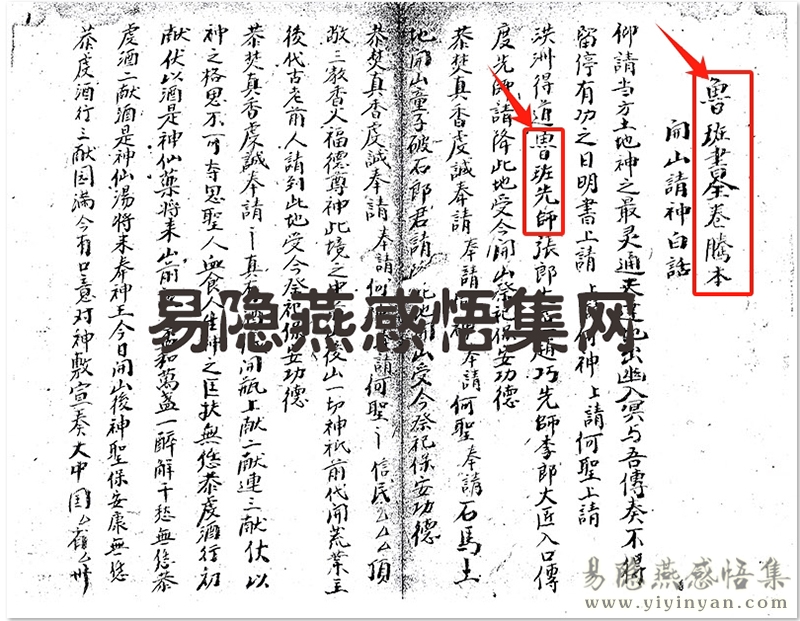 魯班書全卷騰本
開山請神白話
仰請当方土地神之最灵通天達地出幽入冥与吾傳奏不得
留停有功之日明書上請上請何神上請何聖上請
洪州得道魯班先師張郎趙巧先師李郎大匠入口傳
度先師請降此地受今開山祭祀保安功德
恭焚真香虔誠奉請奉請何神奉請何聖奉請石馬土
地開山童子破石郎君請此地開山受今祭祀保安功德
恭焚真香虔誠奉請奉請何奉請何聖信民厶厶厶頂
敬三教香火福德尊神此境之中後山一切神祇前代開荒業主
後代古老前人請到此地受今祭祀保安功德
恭焚真香虔誠奉請真間瓶上献二献連三献伏以
神之格思不可夺思聖人血食人生神之匡扶無恁恭虔酒行初
献伏以酒是神仙藥将来山前和萬盏一醉解千愁無恁恭
虔酒二献酒是神仙湯将来奉神王今日開山後神聖保安康無恁
恭虔酒行三献圆满今有口意对神敷宣奏大中国厶省厶州
易隐燕感悟集网
易隐燕感悟集
www.yiyinyan.com